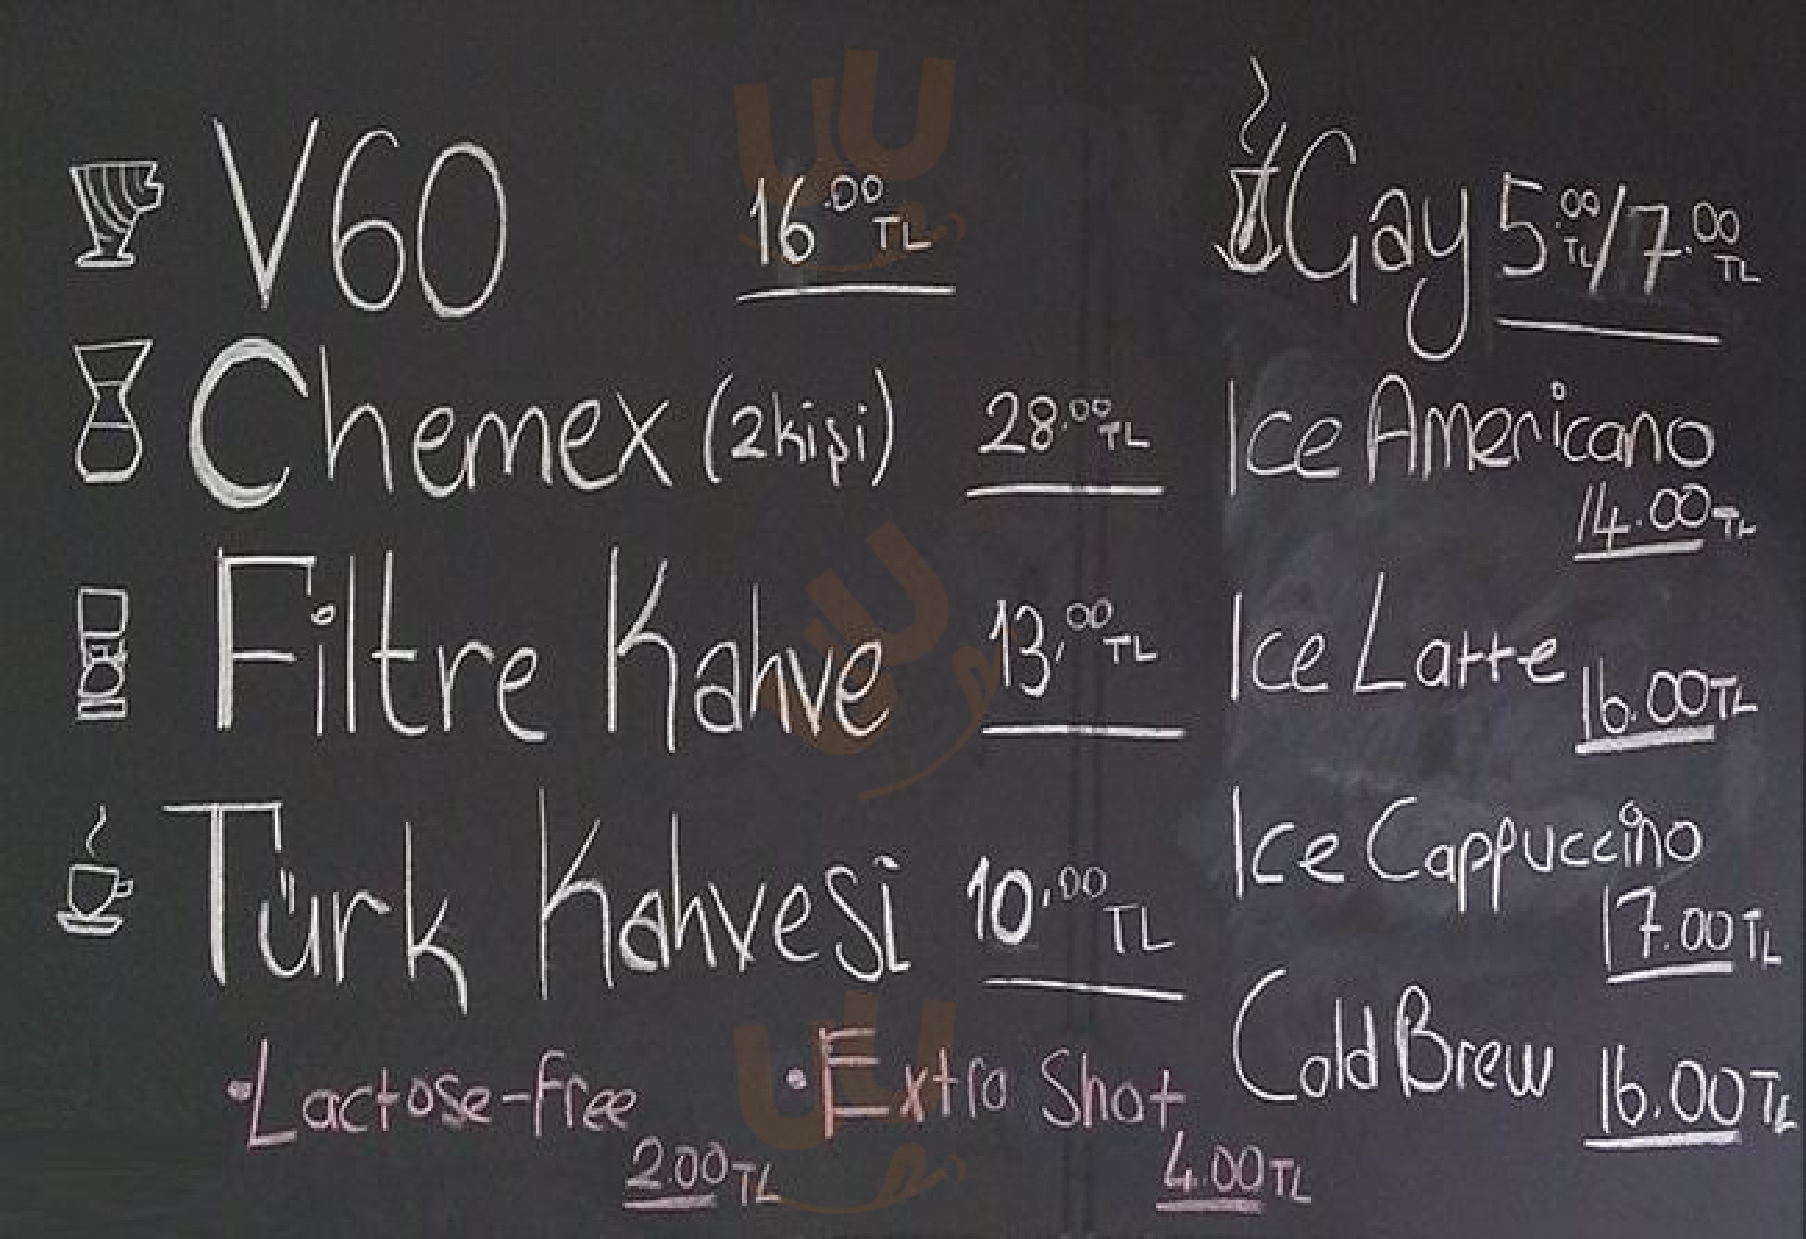 V60 16.00 TL
Chemex (2kişi) 28.00 TL
Filtre Kahve 13,00 TL
Türk Kahvesi 10,00 TL
•Lactose-free
2.00 TL
•Extra Shot
4.00 TL
Çay 5.00 TL/7.00 TL
Ice Americano
14.00 TL
Ice Latte
16.00 TL
Ice Cappuccino
17.00 TL
Cold Brew
16.00 TL